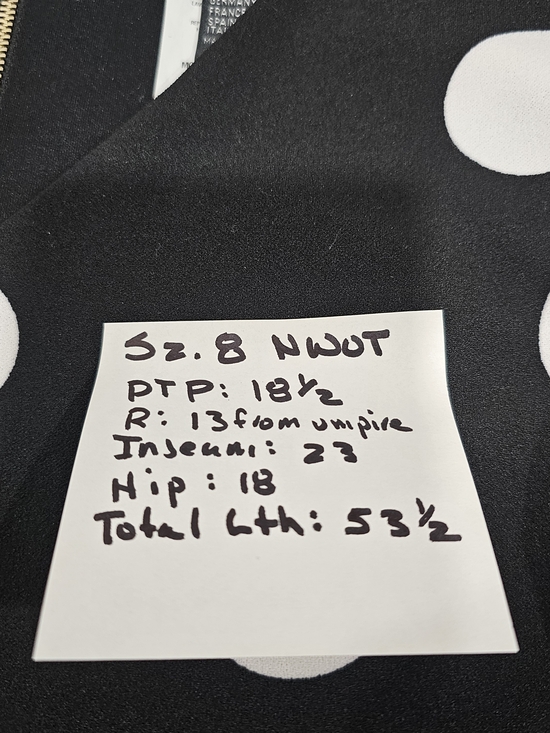 GERMAN
FRANCE
SPAIN
ITAL
Sz. 8 NWOT
PTP: 18½
R: 13 from umpire
Inseam: 23
Hip: 18
Total Lth: 53½